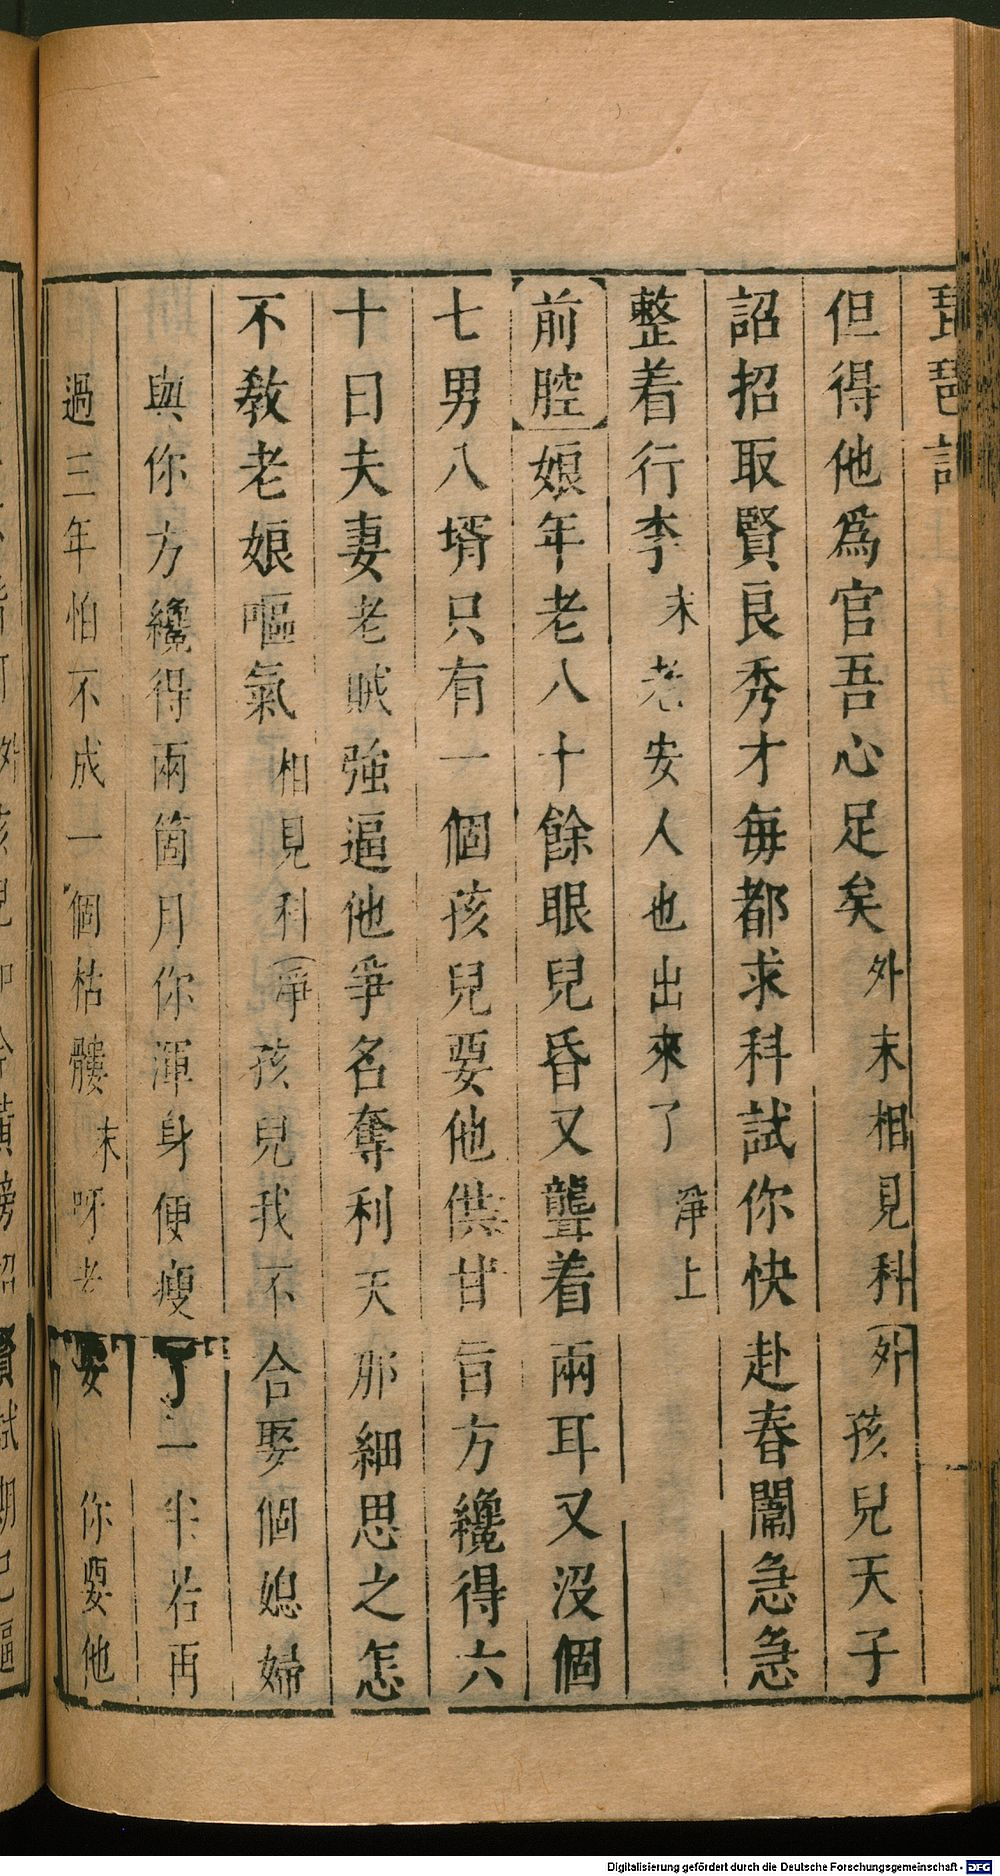 琵琶記
但得他爲官吾心足矣外末相見科外孩兒天子
詔招取賢良秀才每都求科試你快赴春闈急急
整着行李末老安人也出來了淨上
前腔娘年老八十餘眼兒昏又聾着兩耳又沒個
七男八壻只有一個孩兒要他供甘旨方纔得六
十日夫妻老賊強逼他爭名奪利天那細思之怎
不教老娘嘔氣相見科淨孩兒我不合娶個媳婦
與你方纔得兩箇月你渾身便瘦了一半若再
過三年怕不成一個枯髏末呀老安 你要他
Digitalisierung gefördert durch die Deutsche Forschungsgemeinschaft - DFG